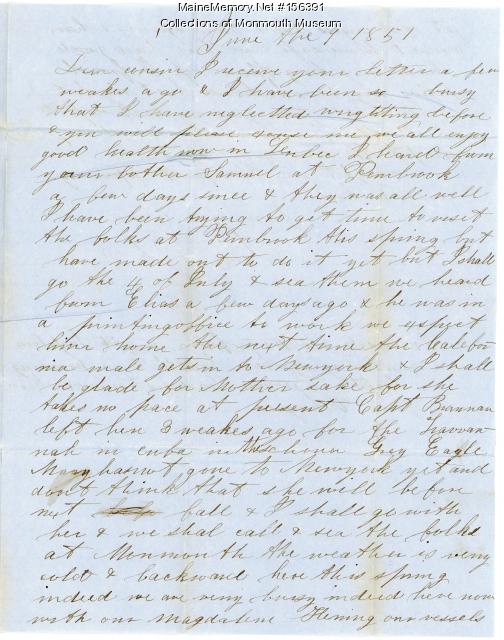 MaineMemory.Net #156391
Collections of Monmouth Museum
June the 9 1851
Dear cousin I receive your letter a few
weakes ago & I have been so busy
that I have neglectted wrightting before
& you will please excuse me we all enjoy
good health now in Lubec I heard from
your bother Samuel at Pembrook
a few days since & they was all well
I have been trying to get time to veset
the folks at Pembrook this spring but
have made out to do it yet but I shall
go the 4 of July & sea them we heard
from Elias a few days ago & he was in
a printing office to work we exspect
him home the next time the Calefor
nia male gets in to Newyork & I shall
be glade for Mother sake for she
takes no peace at present Capt Brannan
left here 3 weakes ago for the Havvan
nah in cuba in the Grey Eagle
Mary has not gone to Newyork yet and
dont think that she will before
next fall & I shall go with
her & we shal call & sea the folks
at Monmouth the weather is very
cold & backward here this spring
indeed we are very bussy indeed here now
with our Magdalene Hering our vessels